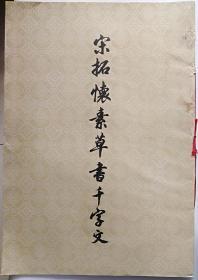 宋拓懷素草書千字文